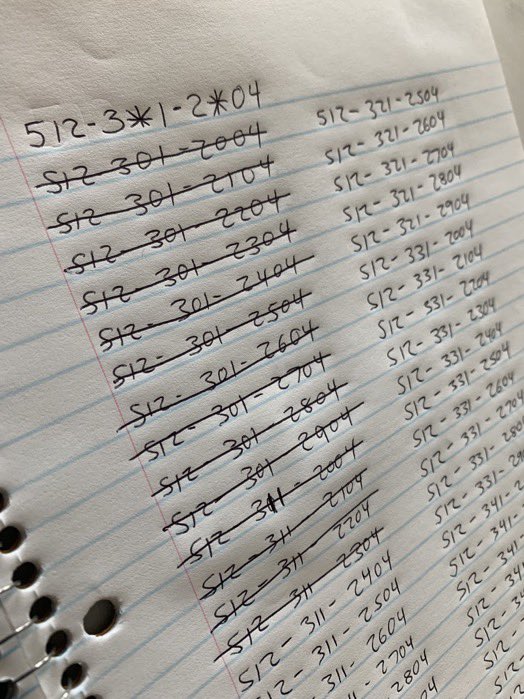 512-3*1-2*04
512-301-2004
512-301-2104
512-301-2204
512-301-2304
512-301-2404
512-301-2504
512-301-2604
512-301-2704
512-301-2804
512-301-2904
512-311-2004
512-311-2104
512-311-2204
512-311-2304
512-311-2404
512-311-2504
311-2604
2704
2804
512-321-2504
512-321-2604
512-321-2704
512-321-2804
512-321-2904
512-331-2004
512-331-2104
512-531-2204
512-331-2304
512-331-2404
512-331-2504
512-331-2604
512-331-270
512-331-280
512-331-2
512-341-2
512-341-
512-341
512-34
512-3